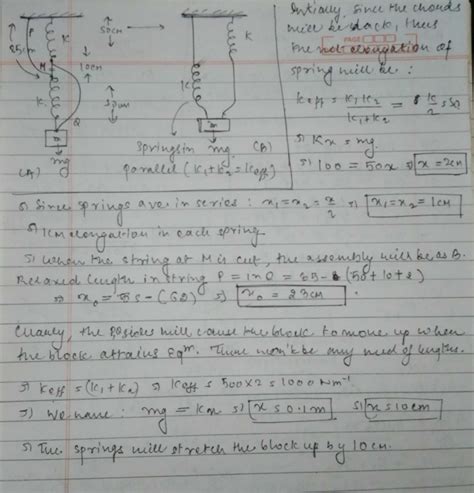 Initially, since the chords
will be slack, thus
the net elongation of
spring will be :
Keff = K1K2 / K1+K2 = K/2
Kx = mg.
100 = 50x x = 2cm
50cm
K
85cm
P
K
M
10cm
50cm
K
K
Q
m
m
mg
mg
(A)
Springs in (B)
parallel (K1+K2 = Keff)
Since springs are in series : x1 = x2 = x/2 x1 = x2 = 1cm
1cm elongation in each spring.
When the string at M is cut, the assembly will be as B.
Relaxed length in string P = in Q = 85 - (50+10+2)
x0 = 85 - (62) x0 = 23cm
Clearly, the will cause the block to move up when
the block attains Eqm. There won't be any need of lengths.
Keff = (K1 + K2) Keff = 500x2 = 1000 Nm-1
We have : mg = Kx x = 0.1m x = 10cm
The springs will stretch the block up by 10cm.